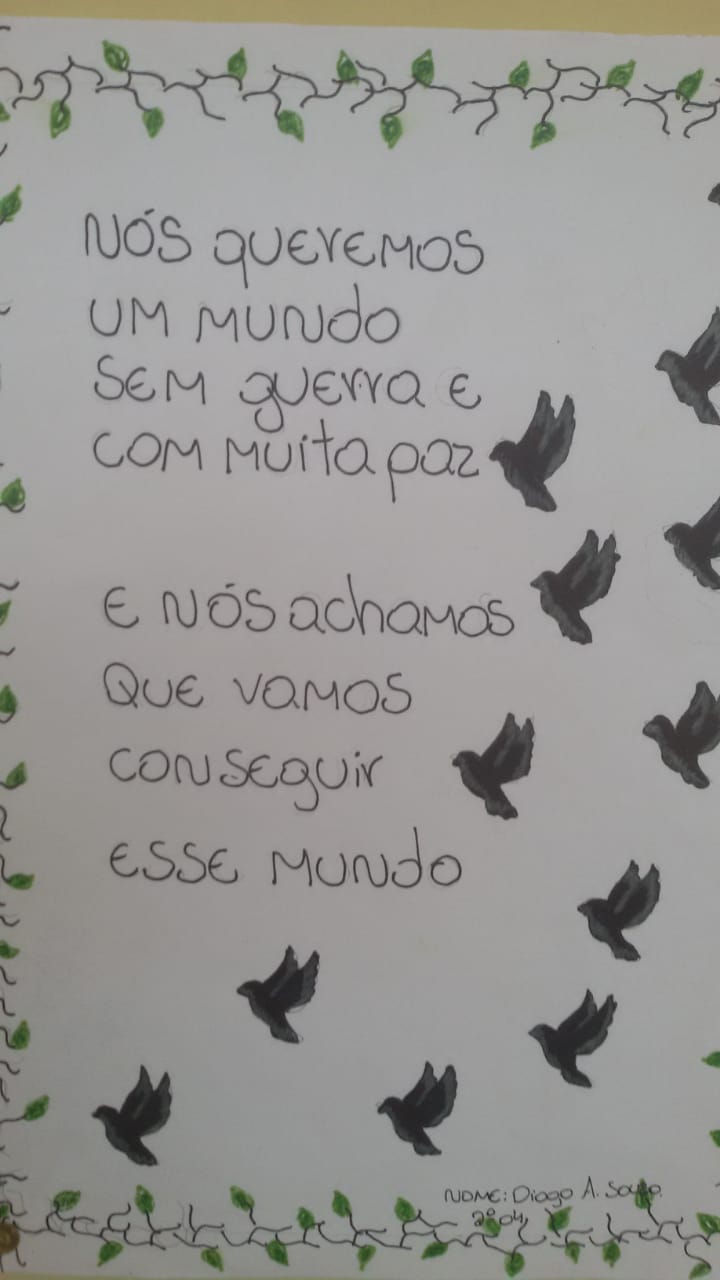 NÓS QUEREMOS
UM MUNDO
SEM guerra E
COM MUITA paz
E NÓS achamos
QUE VAMOS
CONSEGUIR
ESSE MUNDO
NOME: Diogo A.
2º 04